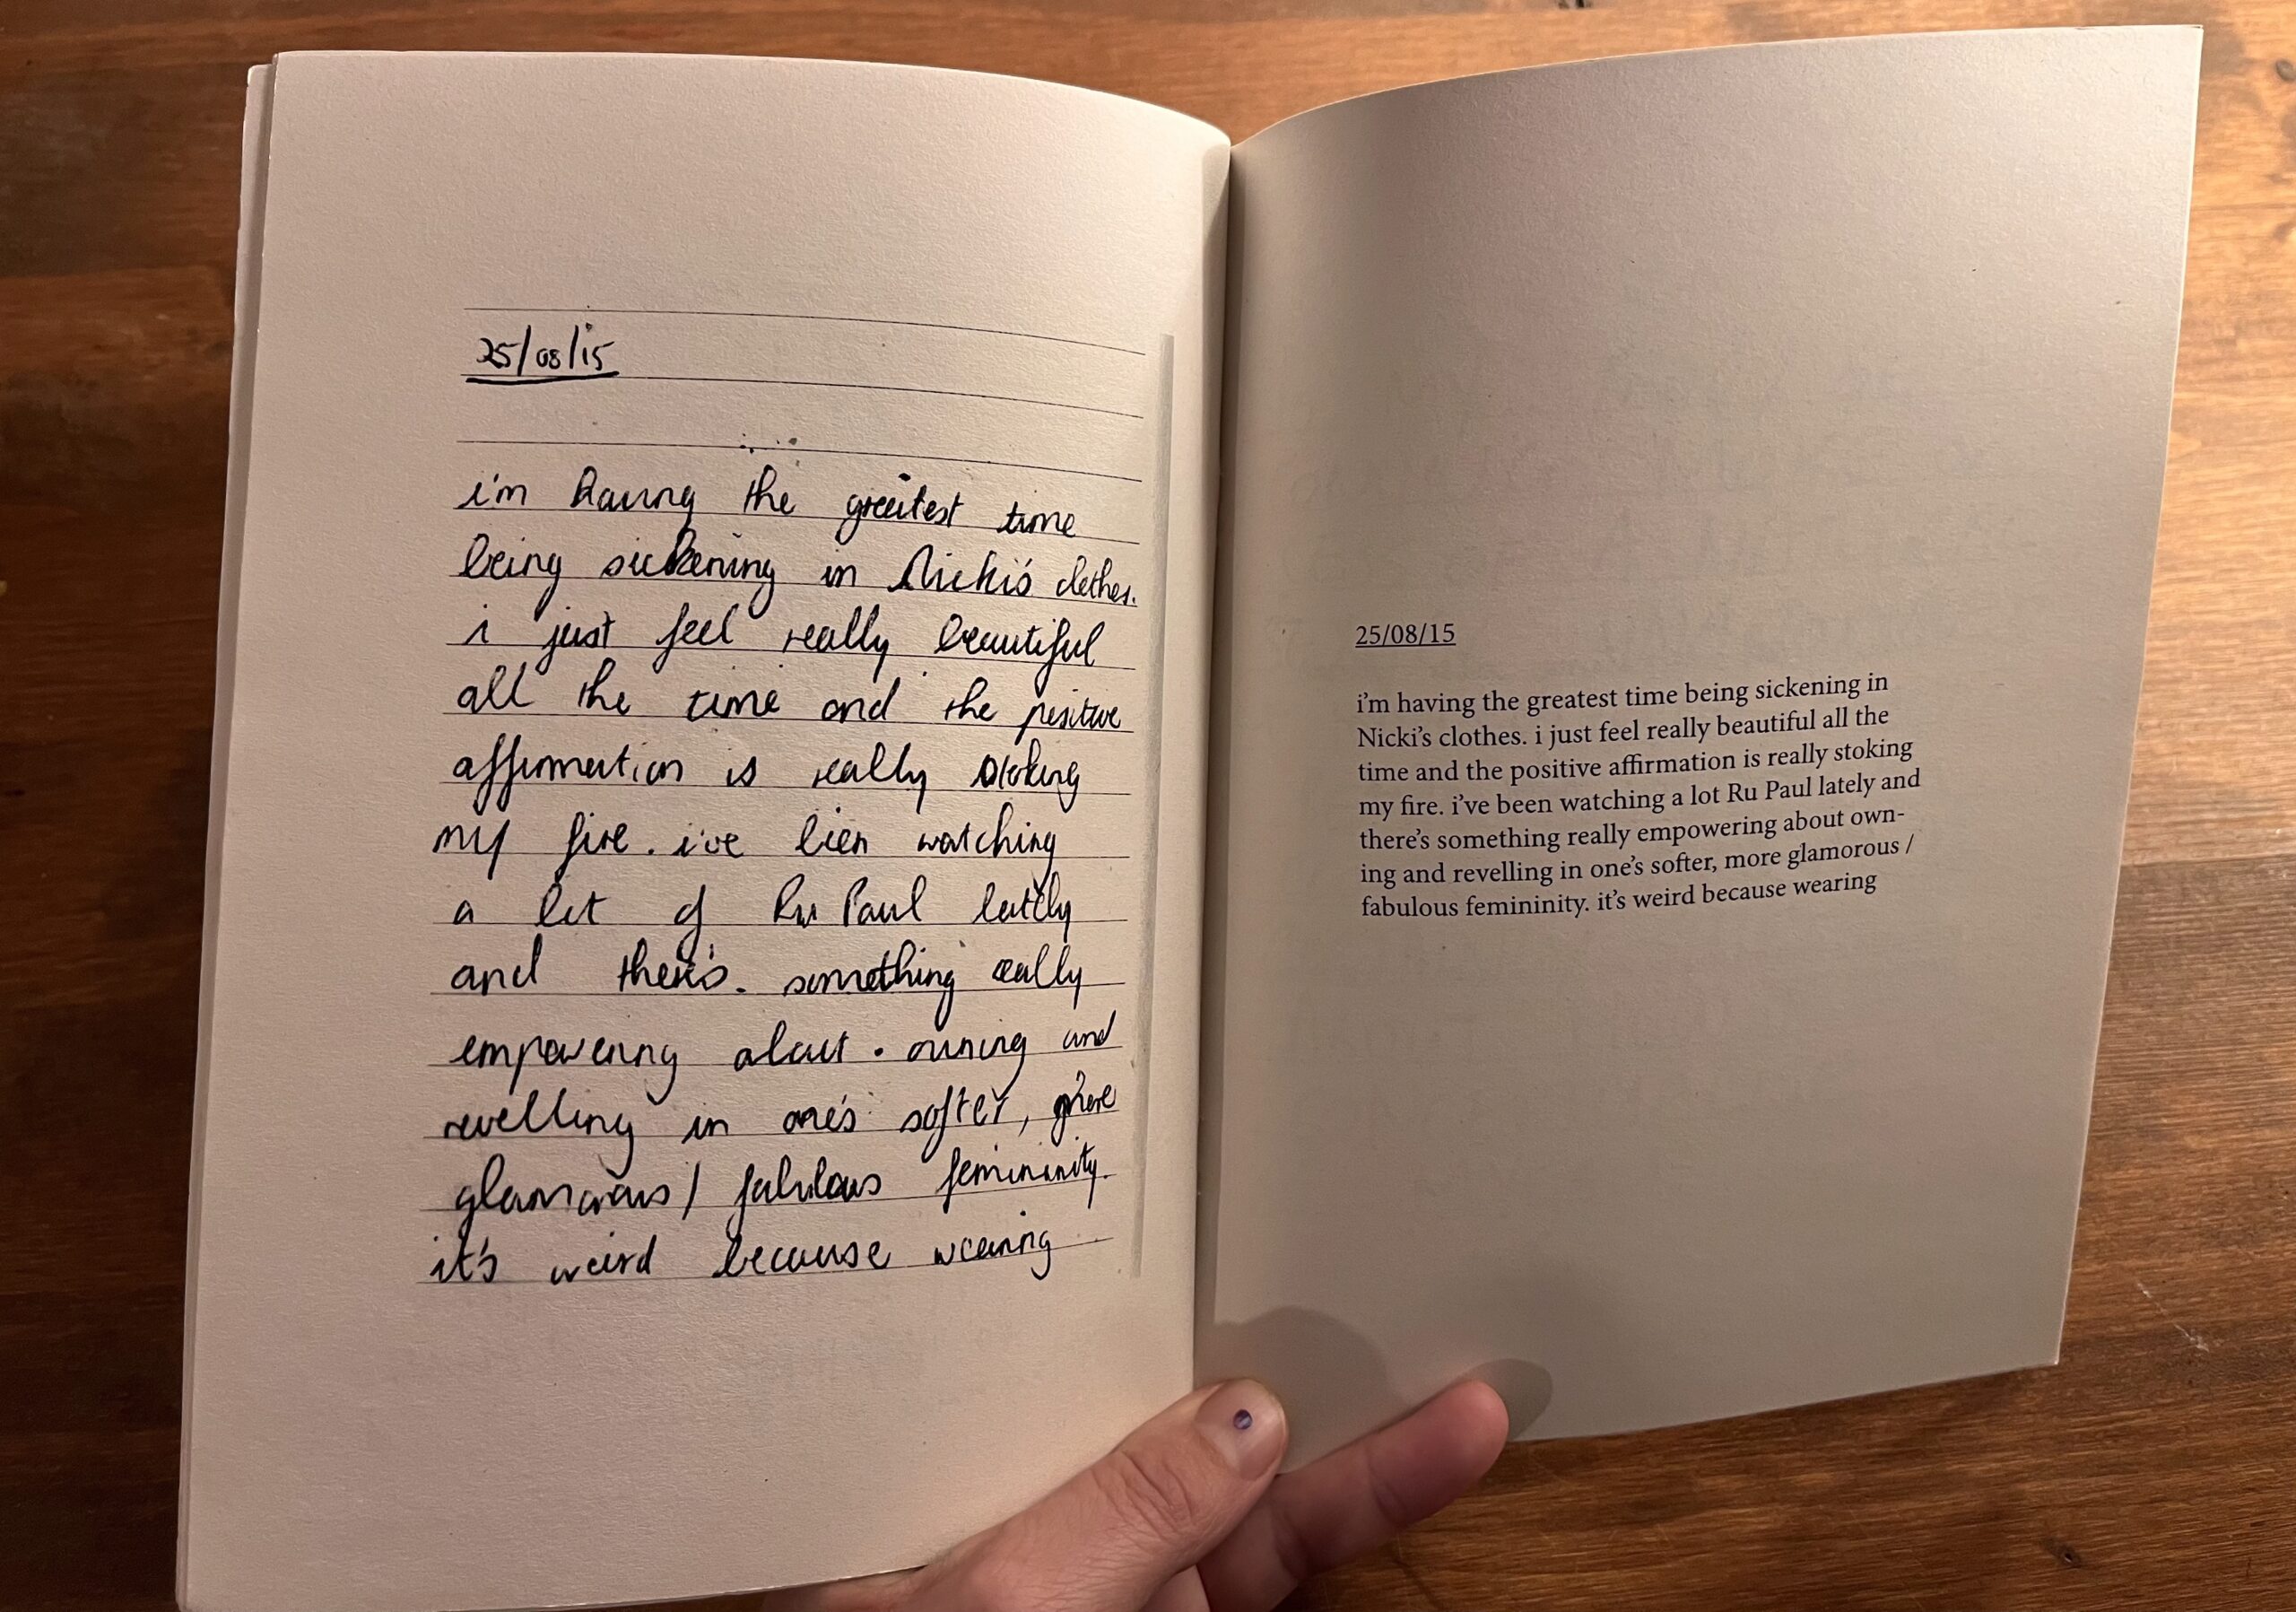 25/08/15
i'm having the greatest time
being sickening in Nicki's clothes.
i just feel really beautiful
all the time and the positive
affirmation is really stoking
my fire. i've been watching
a lot of Ru Paul lately
and there's. something really
empowering about. owning and
revelling in one's softer, more
glamorous / fabulous femininity.
it's weird because wearing
25/08/15
i'm having the greatest time being sickening in
Nicki's clothes. i just feel really beautiful all the
time and the positive affirmation is really stoking
my fire. i've been watching a lot Ru Paul lately and
there's something really empowering about own-
ing and revelling in one's softer, more glamorous /
fabulous femininity. it's weird because wearing